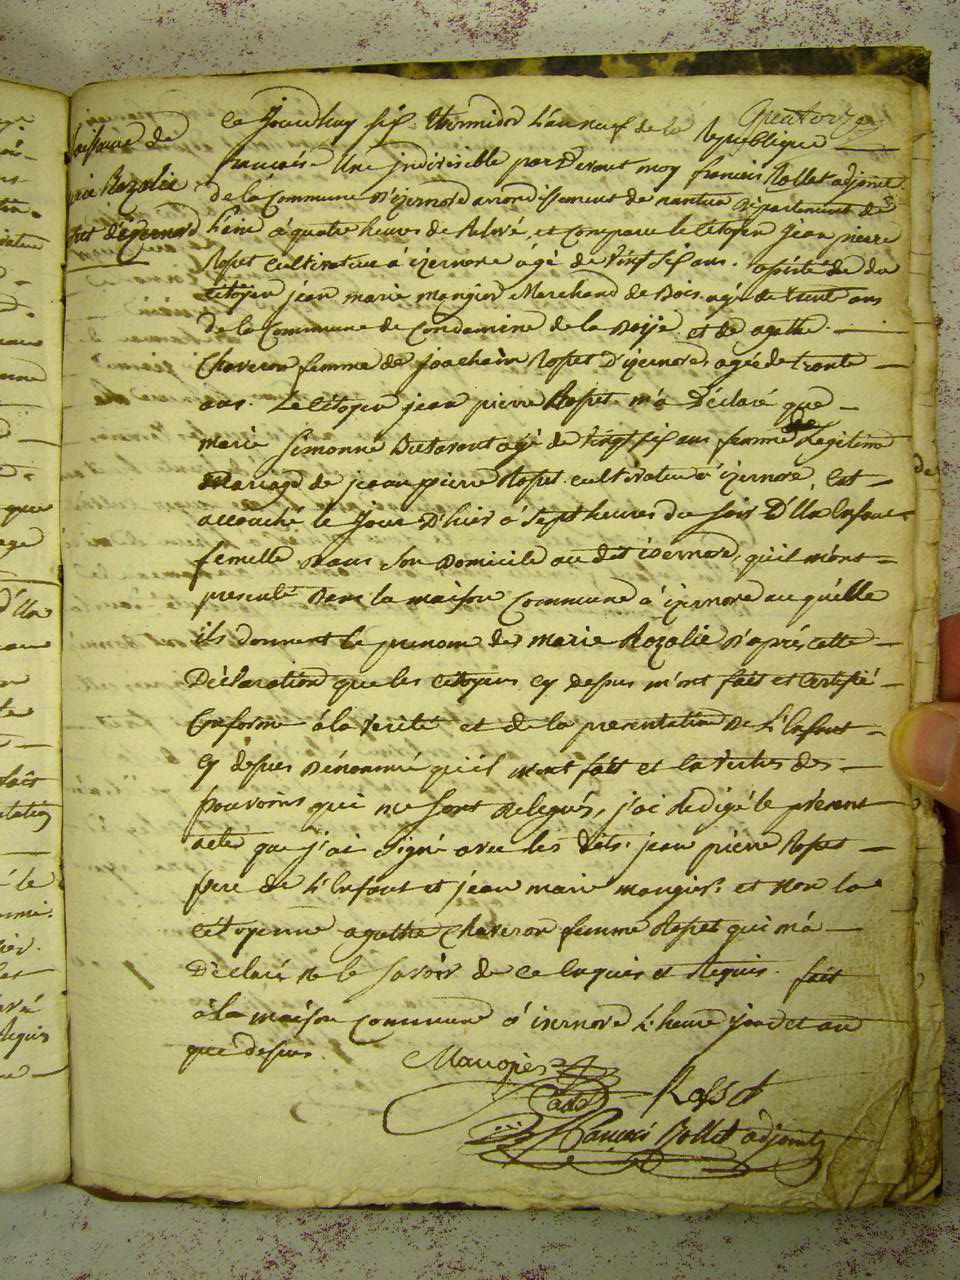 quatorze
Naissance de
marie Rozalie
Rosset d'izernord
Ce Jourdhuy six thermidor L'an neuf de la Republique
francaise Une Indivisible par Devant moy francois Rollet adjoint
de la Commune D'izernore arrondissement de nantua Département de
L'ain à quatre heures de Relevé, est Comparu le Citoyen Jean pierre
Rosset Cultivateur à izernore âgé de vingt six ans. assisté de du
Citoyen jean marie Mangier Marchand de Bois agé de trente ans
de la Commune de Condamine de la Doÿe et de agathe
Chaveron femme de joachain Rosset D'izernore agée de trente
ans. Le Citoyen jean pierre Rosset m'a Déclaré que
marie Simonne agé de vingt six ans femme de Legitime
Mariage de jean pierre Rosset cultivateur à izernore, Est
accouché le Jour D'hier à Sept heures du soir D'Un Enfant
femelle Dans Son Domicile au dit izernore, qu'il m'ont
presenté Dans la maison Commune à izernore au quélle
ils donnent le prenom de marie Rozalie D'aprés cette
Déclaration que les Citoyens Cy dessus m'ont fait et Certifié
Conforme à la Verité et de la presentation De L'Enfant
Cy dessus Dénommé qu'il mont fait et En Vertu des
pouvoirs qui me sont delegués, j'ai redigé le présent
acte que j'ai Signé avec les dits jean pierre Rosset
pere de L'Enfant et jean marie mangier. et Non la
Citoyenne agathe Chaveron femme Rosset qui m'a
Déclaré Ne le savoir de Ce Enquis et Requis. fait
à la maison Commune d'izernore L'heure jour et an
que dessus.
Rosset
francois Rollet adjoint